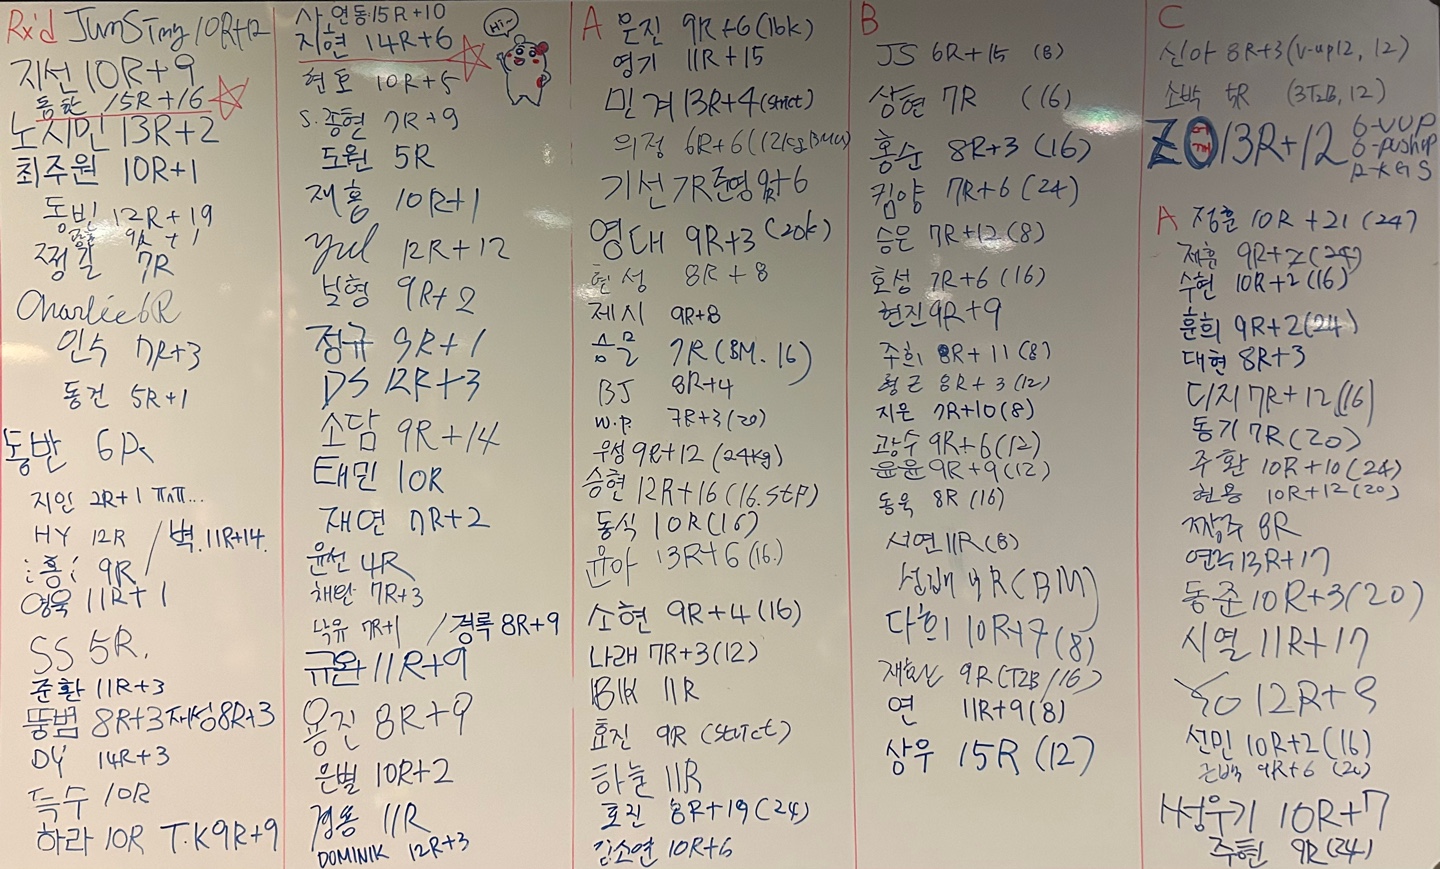 Rx'd JunSTiny 10R+12
지선 10R+9
동환 15R+16
노시민 13R+2
최주원 10R+1
동빈 12R+19
9R+1
찡길 7R
Charlie 6R
인수 7R+3
동건 5R+1
동반 6R
지인 2R+1 ㅠㅠ...
HY 12R / 벽. 11R+14.
¡홍¡ 9R
영욱 11R+1
SS 5R.
준환 11R+3
뚱범 8R+3 재성 8R+3
DY 14R+3
득수 10R
하라 10R T.K 9R+9
사, 연동 15R+10
지현 14R+6
Hi~
현호 10R+5
S.종현 7R+9
도원 5R
재홍 10R+1
yul 12R+12
보형 9R+2
정규 9R+1
DS 12R+3
소담 9R+14
태민 10R
재연 7R+2
윤선 4R
채완 7R+3
낙유 7R+1 / 경록 8R+9
규완 11R+9
용진 8R+9
은별 10R+2
경용 11R
DOMINIK 12R+3
A 은진 9R+6 (16k)
영기 11R+15
민겨 13R+4 (strict)
의정 6R+6 (12kg BMU)
기선 7R 준영 9R+6
영대 9R+3 (20k)
현성 8R+8
제시 9R+8
승물 7R (BM. 16)
BJ 8R+4
W.P 7R+3 (20)
우성 9R+12 (24kg)
승현 12R+16 (16. STP)
동식 10R (16)
윤아 13R+6 (16.)
소현 9R+4 (16)
나래 7R+3 (12)
BIK 11R
효진 9R (strict)
하늘 11R
효진 8R+19 (24)
김소연 10R+6
B
JS 6R+15 (8)
상현 7R (16)
홍순 8R+3 (16)
킴양 7R+6 (24)
승은 7R+12 (8)
호성 7R+6 (16)
현진 9R+9
주희 8R+11 (8)
형근 8R+3 (12)
지은 7R+10 (8)
광수 9R+6 (12)
윤윤 9R+9 (12)
동욱 8R (16)
서연 11R (8)
(BM)
다희 10R+7 (8)
재환 9R (T2B/16)
연 11R+9 (8)
상우 15R (12)
C
신아 8R+3 (V-up12, 12)
소박 5R (3T2B, 12)
ZO 어깨 13R+12 6-VUP
6-pushup
12-KBS
A 정훈 10R+21 (24)
제훈 9R+2 (24)
수현 10R+2 (16)
훈희 9R+2 (24)
대현 8R+3
디지 7R+12 (16)
동기 7R (20)
주환 10R+10 (24)
현용 10R+12 (20)
짱주 8R
연주 13R+17
동준 10R+3 (20)
시열 11R+17
YO 12R+9
선민 10R+2 (16)
은백 9R+6 (20)
H성우기 10R+7
주현 9R (24)